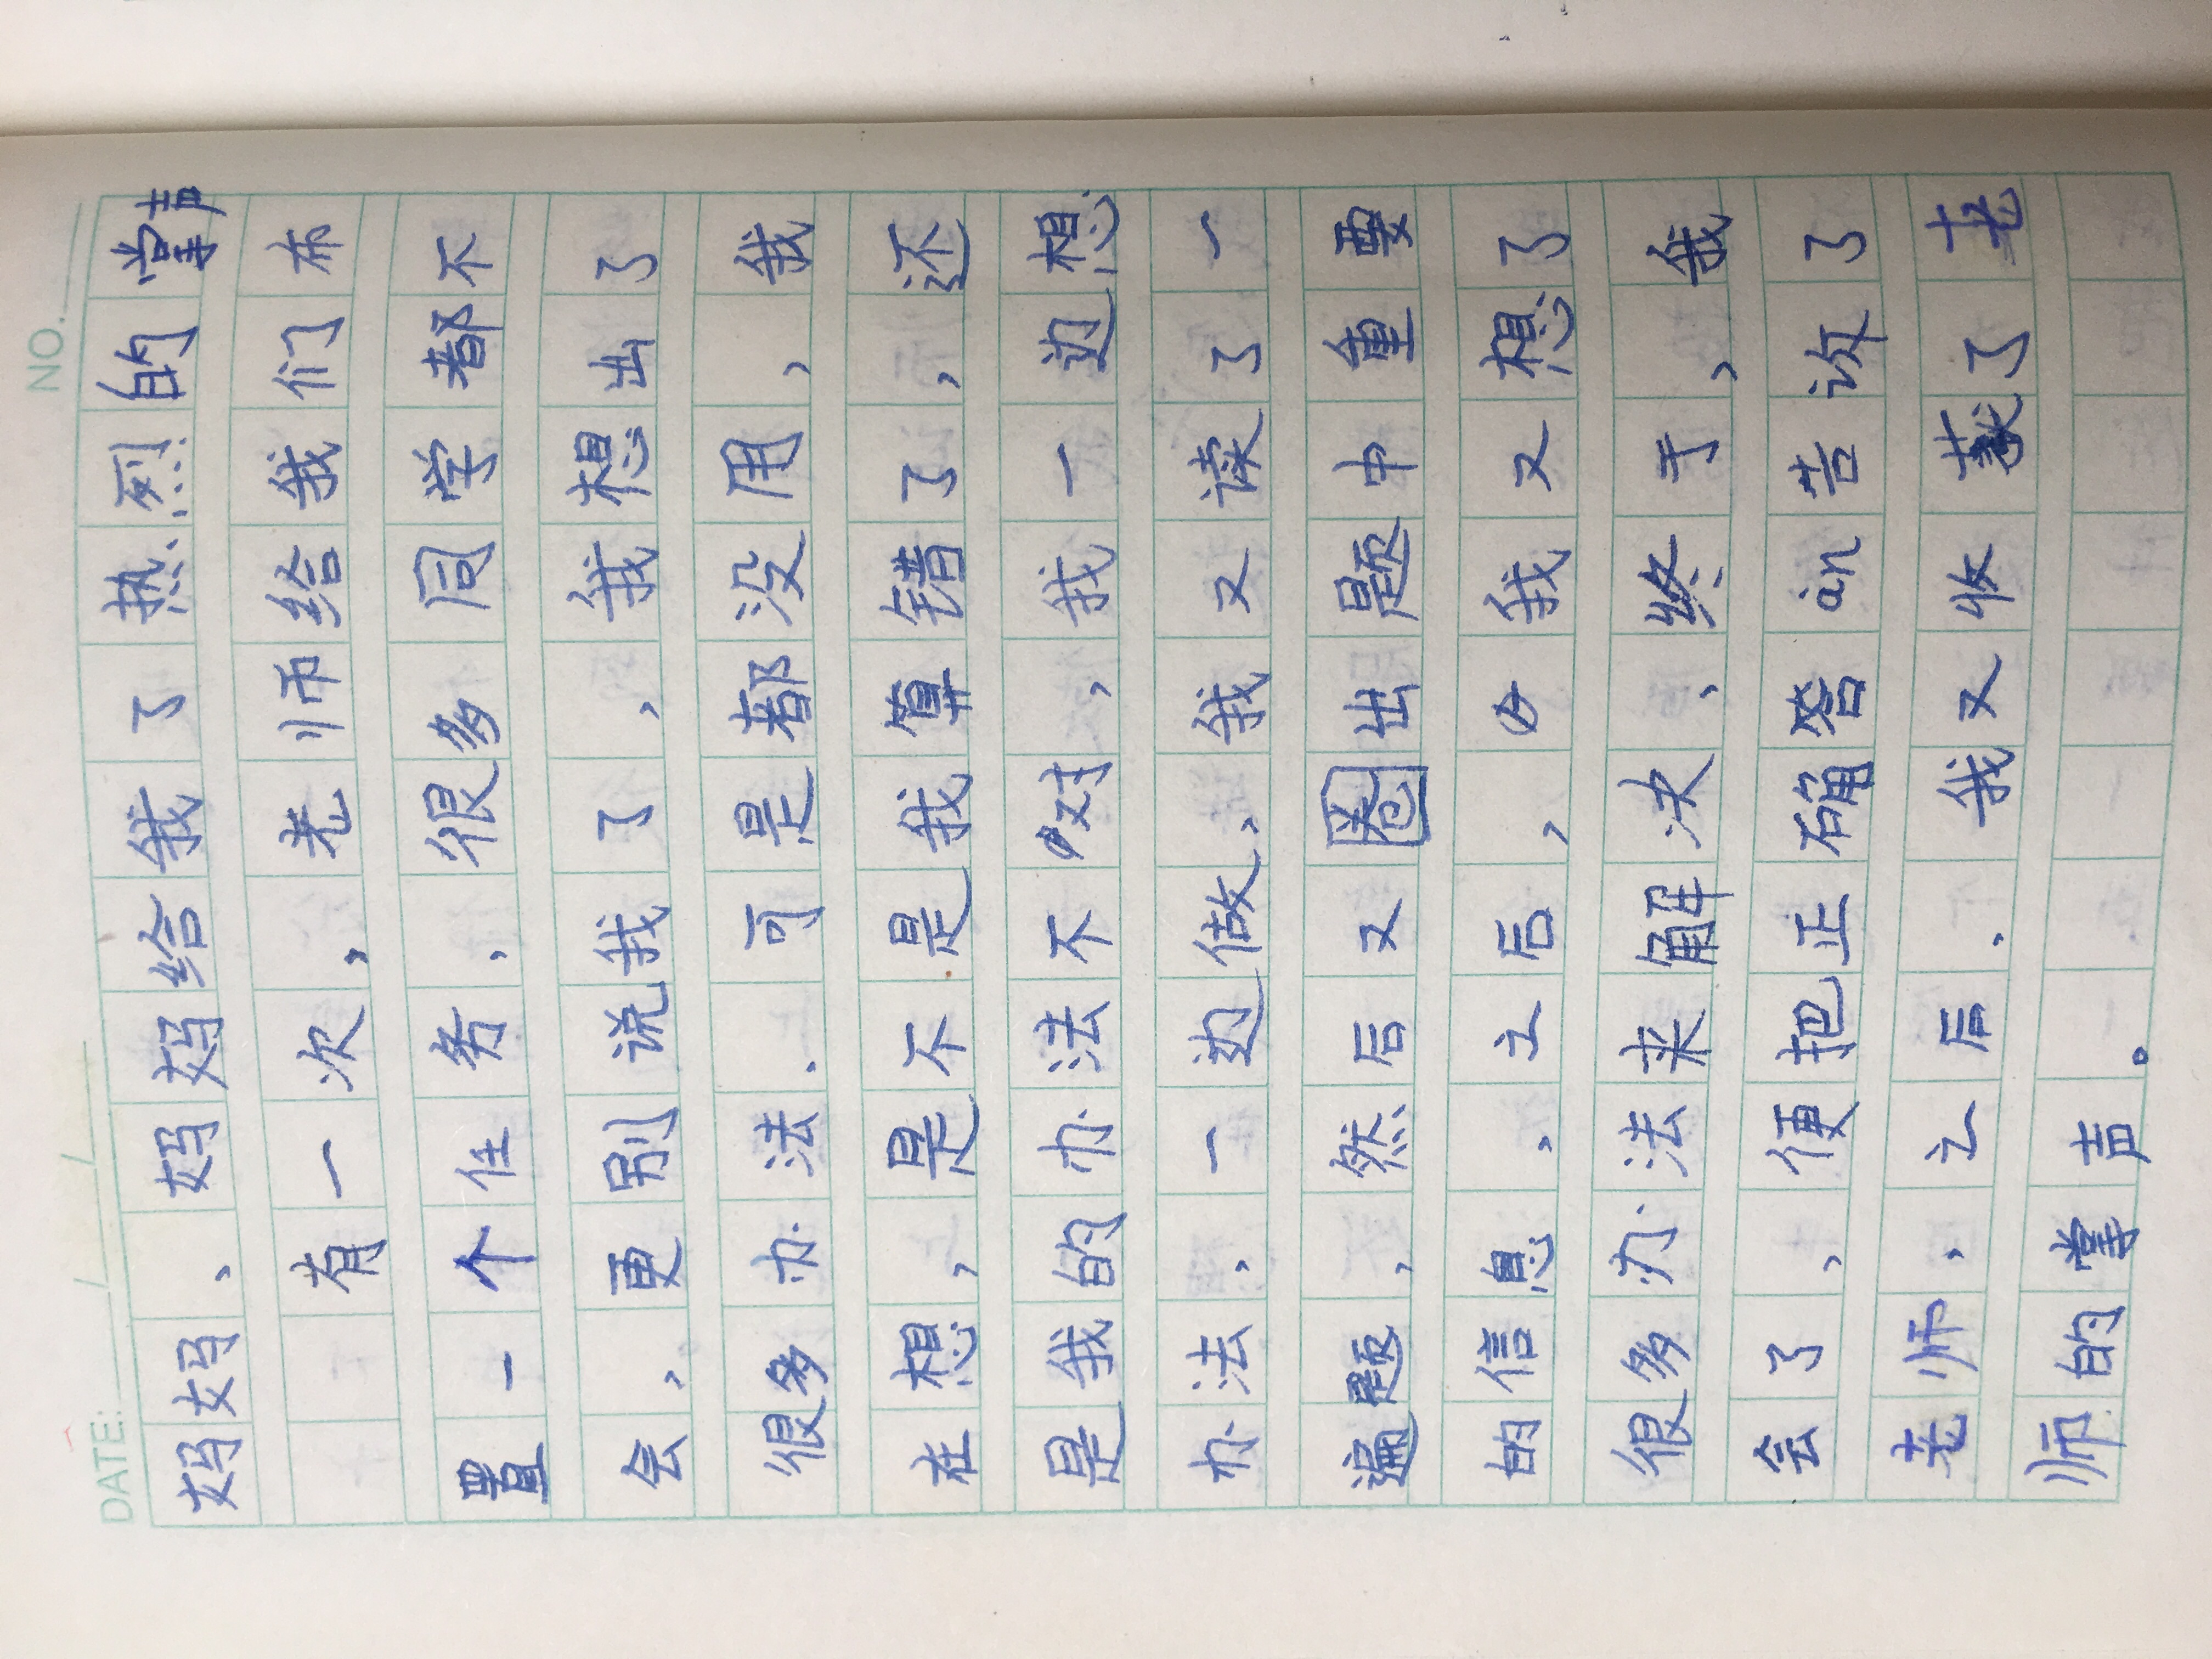 NO.
DATE: / /
妈妈，妈妈给我了热烈的掌声
有一次，老师给我们布
置一个任务，很多同学都不
会，更别说我了，我想出了
很多办法，可是都没用，我
在想，是不是我算错了，还
是我的办法不对，我一边想
办法，一边做，我又读了一
遍题，然后又圈出题中重要
的信息，之后，我又想了
很多办法来解决，终于，我
会了，便把正确答àn告诉了
老师，之后，我又收获了老
师的掌声。